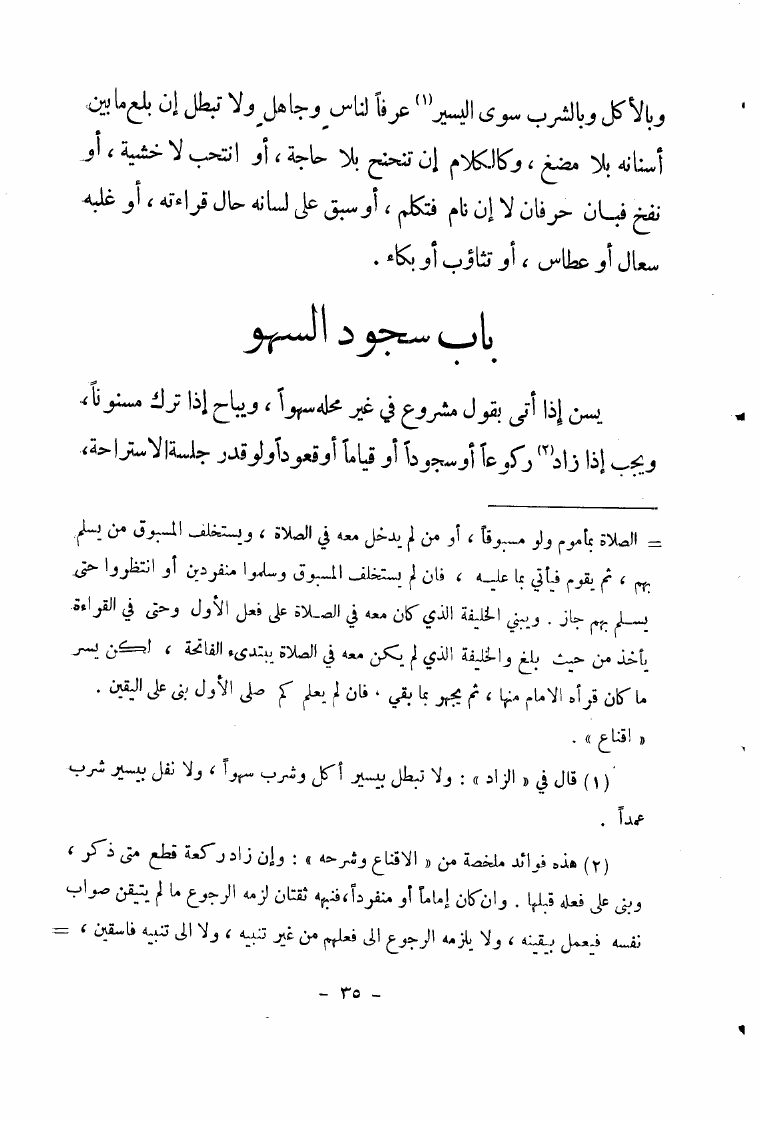 وبالأكل وبالشرب سوى اليسير(١) عرفاً لناسٍ وجاهلٍ ولا تبطل إن بلع ما بين
أسنانه بلا مضغ ، وكالكلام إن تنحنح بلا حاجة ، أو انتحب لا خشية ، أو
نفخ فبان حرفان لا إن نام فتكلم ، أو سبق على لسانه حال قراءته ، أو غلبه
سعال أو عطاس ، أو تثاؤب أو بكاء .
باب سجود السهو
يسن إذا أتى بقول مشروع في غير محله سهواً ، ويباح إذا ترك مسنوناً ،
ويجب إذا زاد(٢) ركوعاً أو سجوداً أو قياماً أو قعوداً ولو قدر جلسة الاستراحة،
= الصلاة بمأموم ولو مسبوقاً ، أو من لم يدخل معه في الصلاة ، ويستخلف المسبوق من يسلم
بهم ، ثم يقوم فيأتي بما عليه ، فان لم يستخلف المسبوق وسلموا منفردين أو انتظروا حتى
يسلم بهم جاز . ويبني الخليفة الذي كان معه في الصلاة على فعل الأول وحتى في القراءة
يأخذ من حيث بلغ والخليفة الذي لم يكن معه في الصلاة يبتدىء الفاتحة ، لكن يسر
ما كان قرأه الامام منها ، ثم يجهر بما بقي . فان لم يعلم كم صلى الأول بنى على اليقين .
« اقناع » .
(١) قال في « الزاد » : ولا تبطل بيسير أكل وشرب سهواً ، ولا نفل بيسير شرب
عمداً .
(٢) هذه فوائد ملخصة من « الاقناع وشرحه » : وإن زاد ركعة قطع متى ذكر ،
وبنى على فعله قبلها . وان كان إماماً أو منفرداً ، فنبهه ثقتان لزمه الرجوع ما لم يتيقن صواب
نفسه فيعمل بيقينه ، ولا يلزمه الرجوع الى فعلهم من غير تنبيه ، ولا الى تنبيه فاسقين ، =
– ٣٥ –